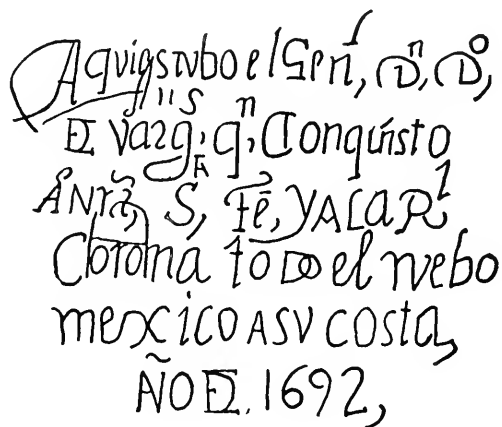 Aqui qstvbo el Genl, Dn, Do,
DE Vargs, qn, Conquisto
A Nrã, S, Fē, Y A La Rl
Corona toDo el nvebo
mexico A SV costa,
AÑO DE. 1692,